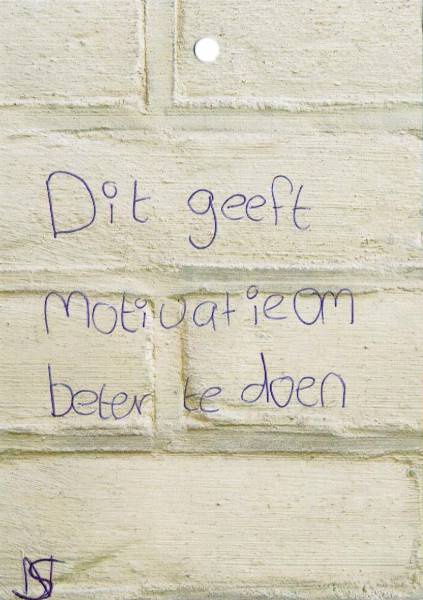 Dit geeft
motivatie om
beter te doen